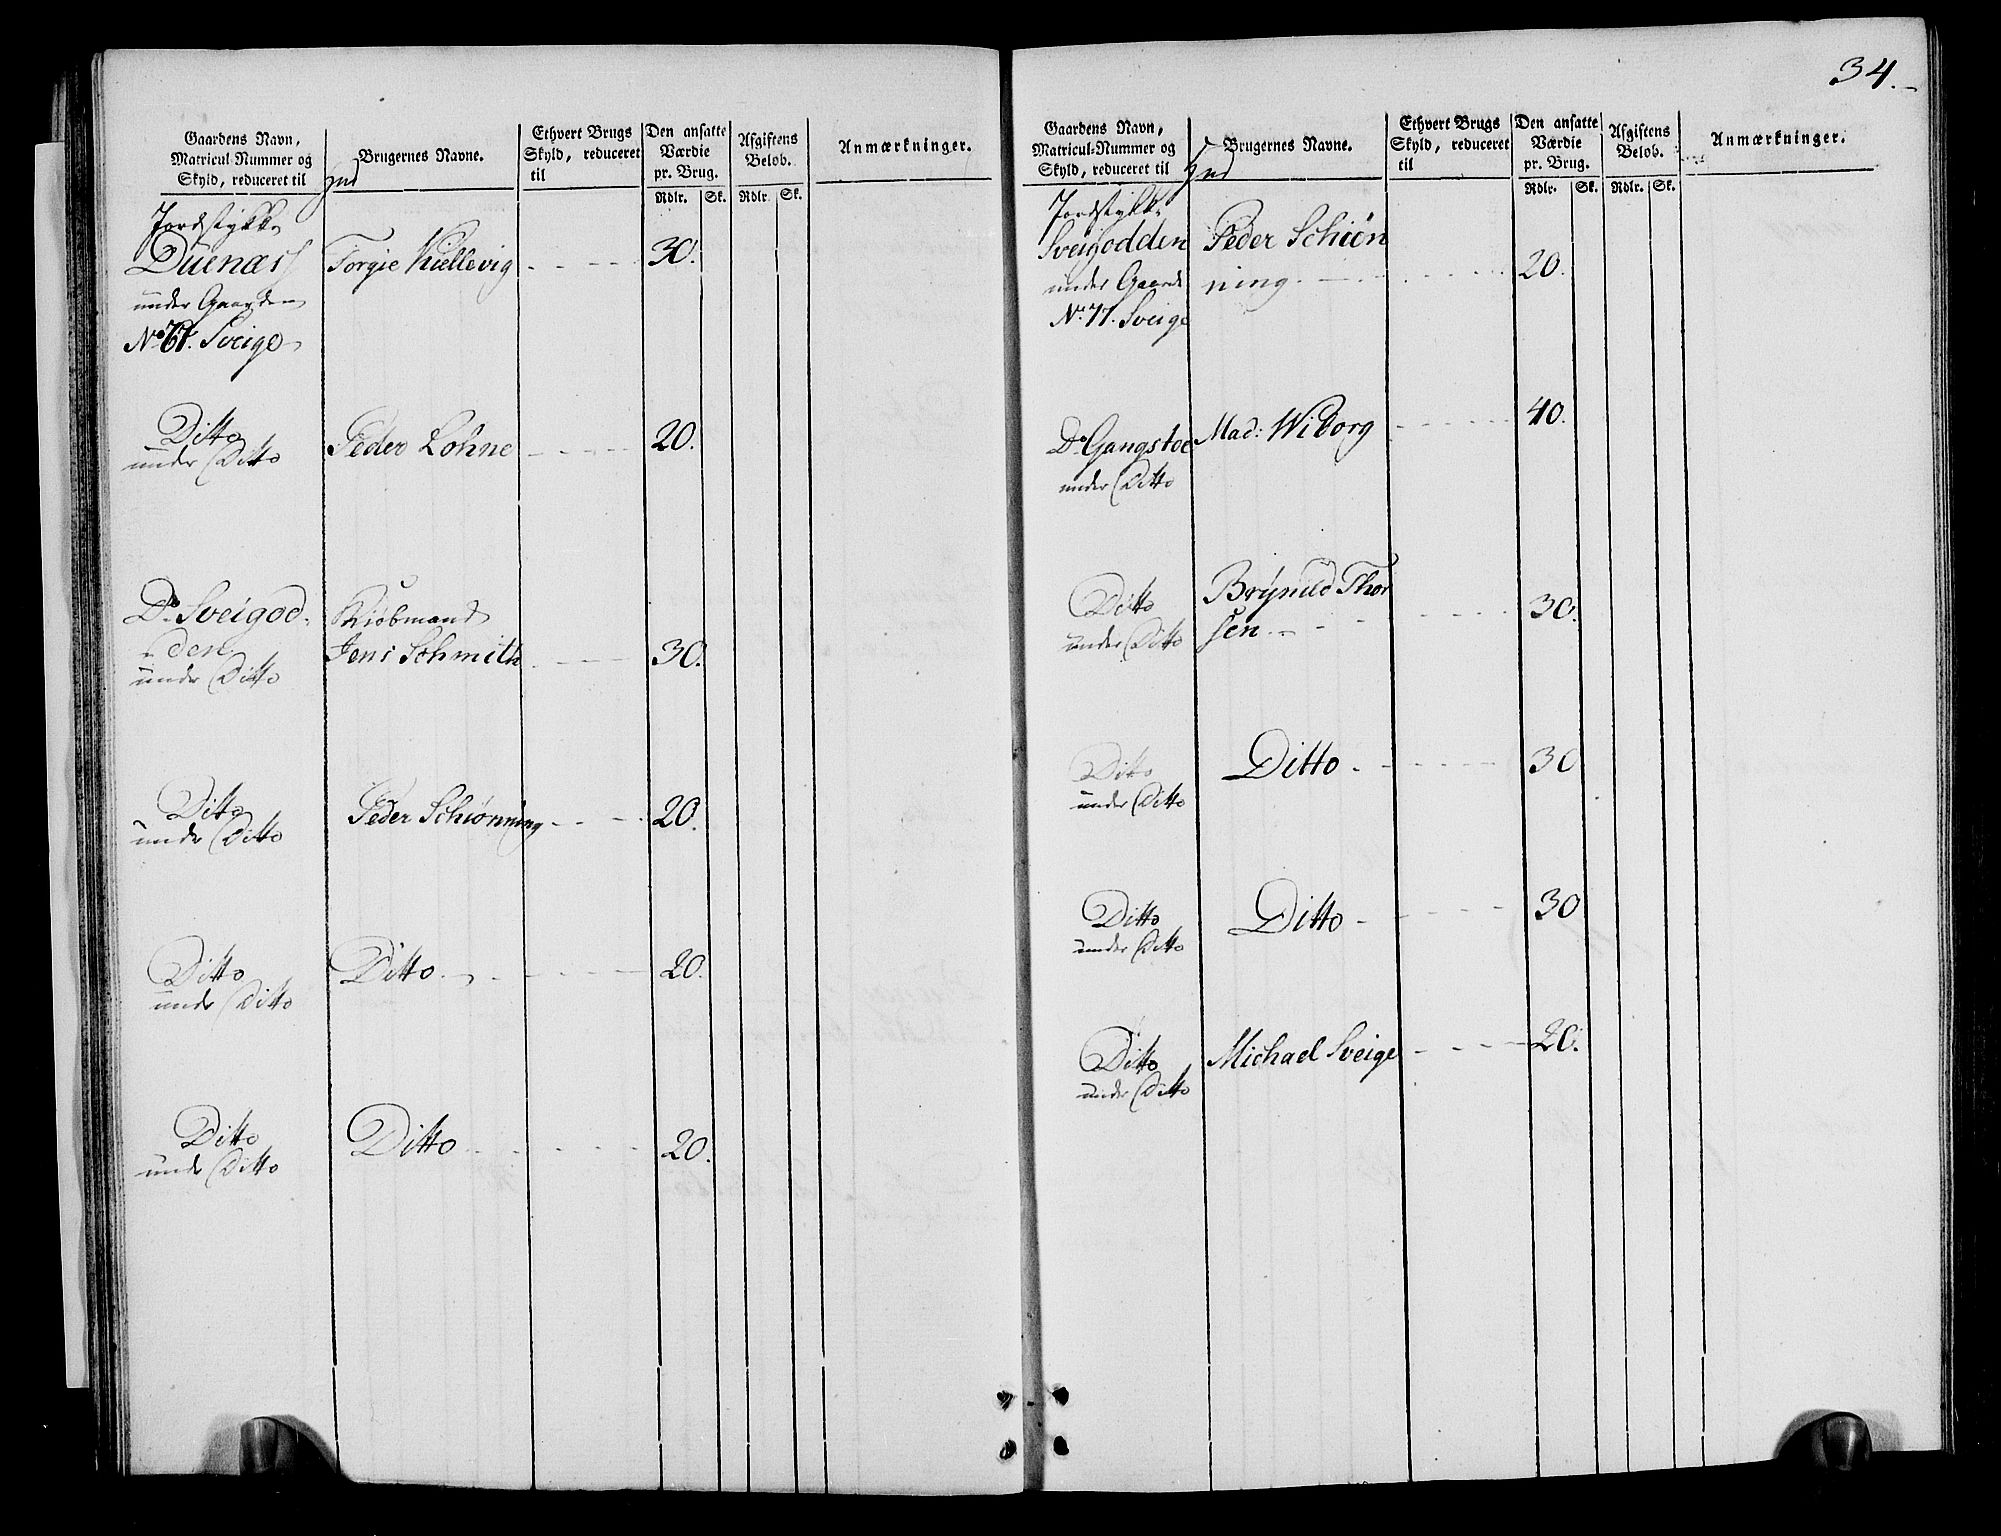 Gaardens Navn,
Matricul-Nummer og
Skyld, reduceret til
Brugernes Navne.
Ethvert Brugs
Skyld, reduceret
til
Den ansatte
Værdie
pr. Brug.
Rdlr. Sk.
Afgiftens
Beløb.
Rdlr. Sk.
Anmærkninger.
Jordstykke
Duenæs
under Gaarden
Sveige
Torgie Kiellevig 30.
Ditto
under Ditto
Peder Lohne 20.
Do Sveigod-
den
under Ditto
Kiøbmand
Jens Schmith 30.
Ditto
under Ditto
Peder Schiønning 20.
Ditto
under Ditto
Ditto 20.
Ditto
under Ditto
Ditto 20.
34.
Gaardens Navn,
Matricul-Nummer og
Skyld, reduceret til
Brugernes Navne.
Ethvert Brugs
Skyld, reduceret
til
Den ansatte
Værdie
pr. Brug.
Rdlr. Sk.
Afgiftens
Beløb.
Rdlr. Sk.
Anmærkninger.
Jordstykke
Sveigodden
under Gaard
No 77. Sveige
Peder Schiøn
ning 20.
Do Gangstoe
under Ditto
Mad: Wiborg 40.
Ditto
under Ditto
Brynild Thor
sen 30.
Ditto
under Ditto
Ditto 30
Ditto
under Ditto
Ditto 30
Ditto
under Ditto
Michael Sveige 20.